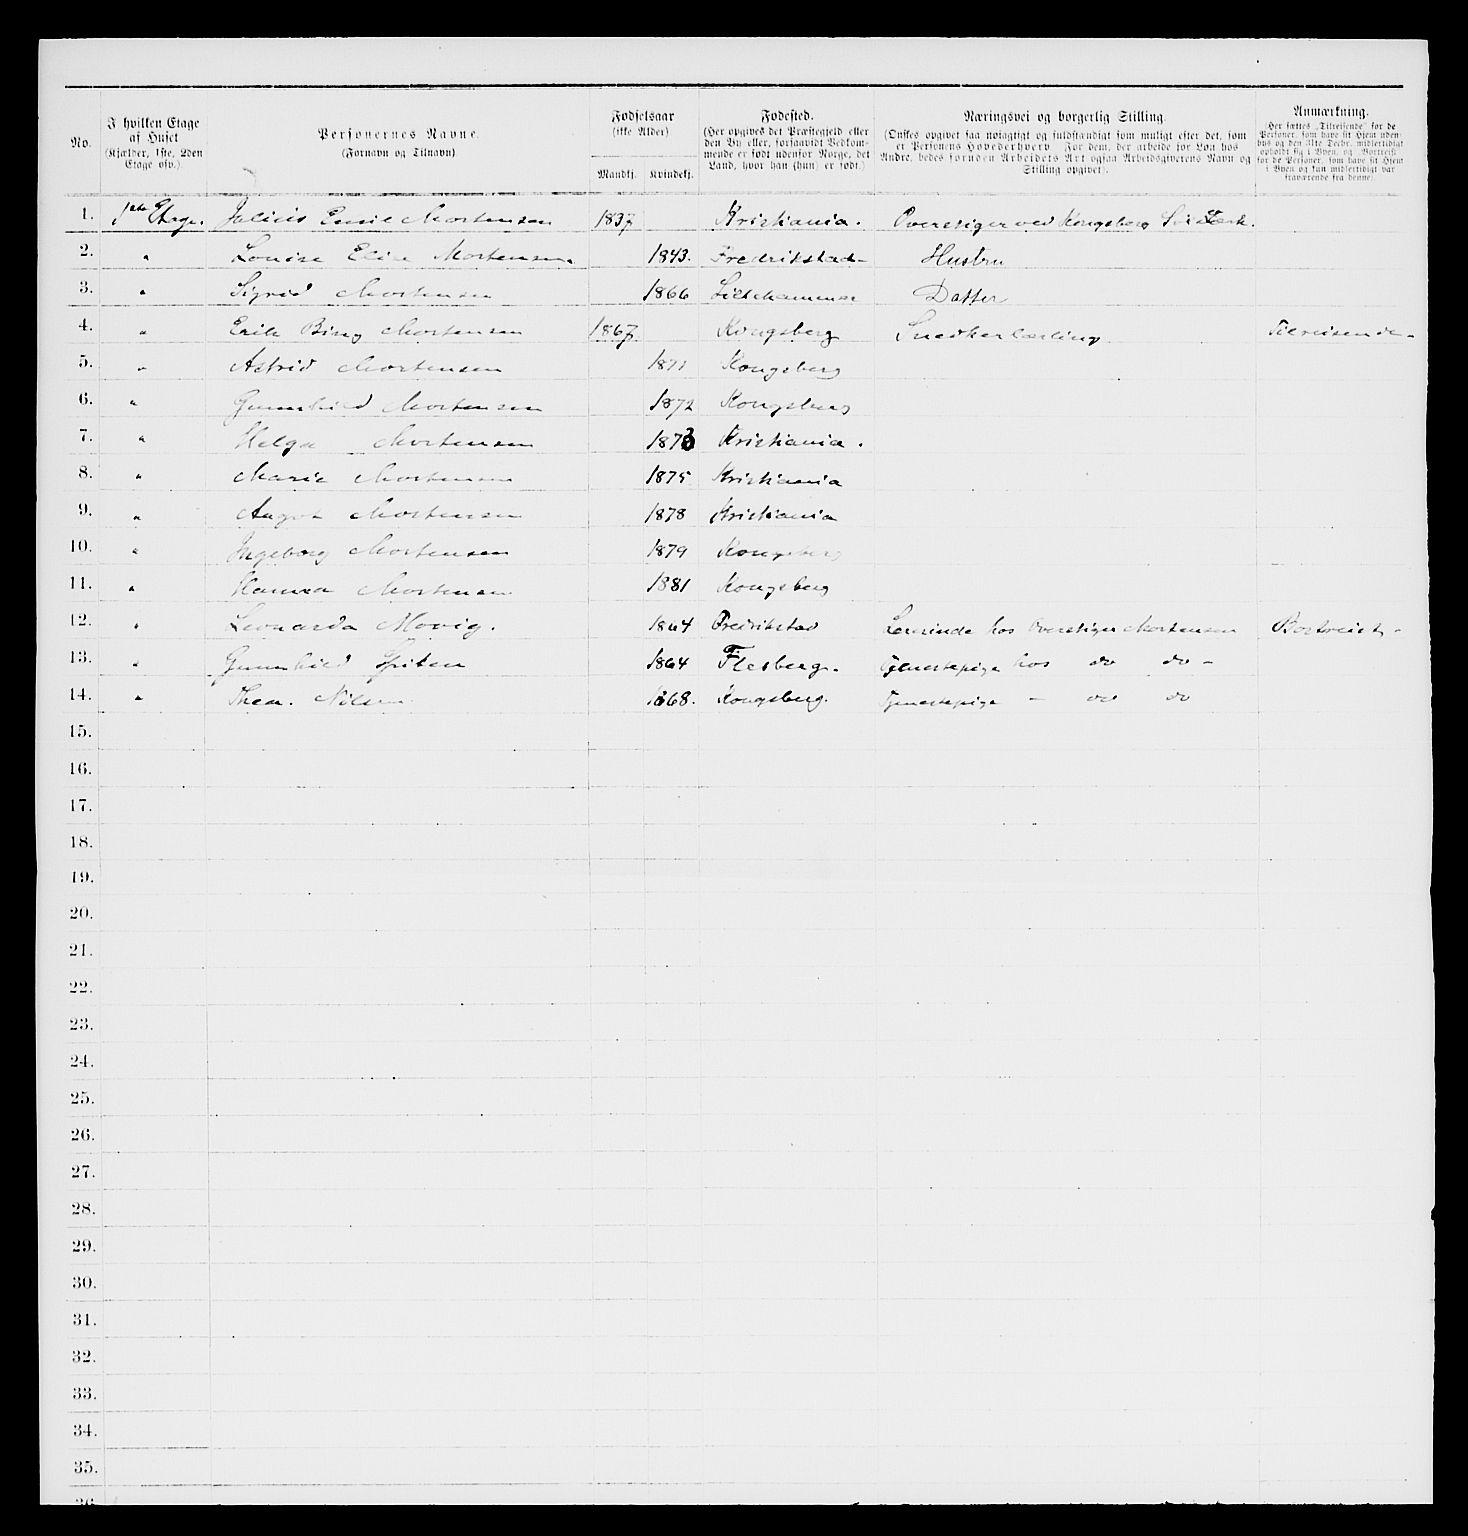 No.
I hvilken Etage
af Huset
(Kjælder, 1ste, 2den
Etage osv.)
Personernes Navne.
(Fornavn og Tilnavn)
Fødselsaar
(ikke Alder)
Mandkj. Kvindekj.
Fødested.
(Her opgives det Præstegjeld eller
den By eller, forsaavidt Vedkom-
mende er født udenfor Norge, det
Land, hvor han (hun) er født.)
Næringsvei og borgerlig Stilling.
(Ønskes opgivet saa nøiagtigt og fuldstændigt som muligt efter det, som
er Personens Hovederhverv. For dem, der arbeide for Løn hos
Andre, bedes foruden Arbeidets Art ogsaa Arbeidsgiverens Navn og
Stilling opgivet).
Anmærkning.
(Her sættes „Tilreisende" for de
Personer, som have sit Hjem uden-
bys og den 31te Decbr. midlertidigt
opholdt sig i Byen, og „Bortreist"
for de Personer, som have sit Hjem
i Byen og kun midlertidigt var
fraværende fra denne).
1. 1ste Etage. Julius Emil Mortensen 1837 Kristiania. Overstiger ved Kongsberg Sølvværk.
2. " Louise Elise Mortensen 1843. Fredrikstad Hustru
3. " Sigrid Mortensen 1866 Lillehammer Datter
4. " Erik Bing Mortensen 1867 Kongsberg Snedkerlærling Tilreisende
5. " Astrid Mortensen 1871 Kongsberg
6. " Gunnhild Mortensen 1872 Kongsberg
7. " Helga Mortensen 1873 Kristiania.
8. " Marie Mortensen 1875 Kristiania
9. " Aagot Mortensen 1878 Kristiania
10. " Ingeborg Mortensen 1879 Kongsberg
11. " Hanna Mortensen 1881 Kongsberg
12. " Leonarda Movig. 1864 Fredrikstad Lærerinde hos Overstiger Mortensen Bortreist
13. " Gunnhild Spiten 1864 Flesberg. Tjenestepige hos do do
14. " Thea. Nilsen 1868. Kongsberg. Tjenestepige - do do
15.
16.
17.
18.
19.
20.
21.
22.
23.
24.
25.
26.
27.
28.
29.
30.
31.
32.
33.
34.
35.